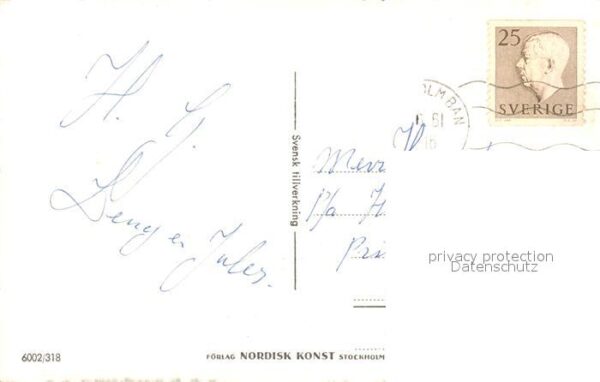 25
SVERIGE
OLMBAN
H. G.
Beng en Jules.
Svensk tillverkning
Mevr
p/a H
Pri
privacy protection
Datenschutz
6002/318
FÖRLAG NORDISK KONST STOCKHOLM